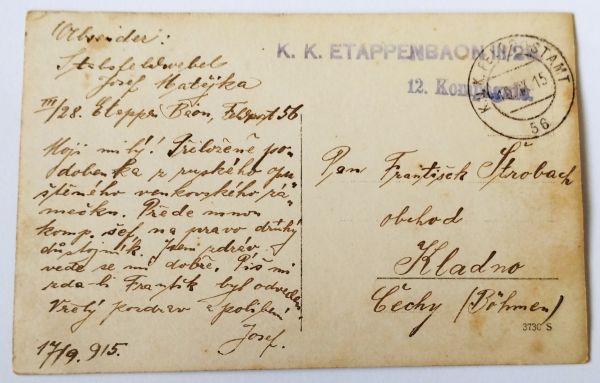 Absender:
Stabsfeldwebel
Josef Matějka
III/28. Etappen Baon, Feldpost 56
Moji milý! Přiložené po-
dobenka z ruského opu-
štěného venkovského zá-
mečku. Přede mnou
komp. šef, na pravo druhý
důstojník. Jsem zdráv,
vede se mi dobře. Piš mi
zda-li Frantík byl odveden.
Vřelý pozdrav a políbení
Josef.
17/9. 915.
K. K. ETAPPENBAON III/28
12. Kompagnie
K.u.K. FELDPOSTAMT
15
56
Pan František Štrobach
obchod
Kladno
Čechy (Böhmen)
3730 S